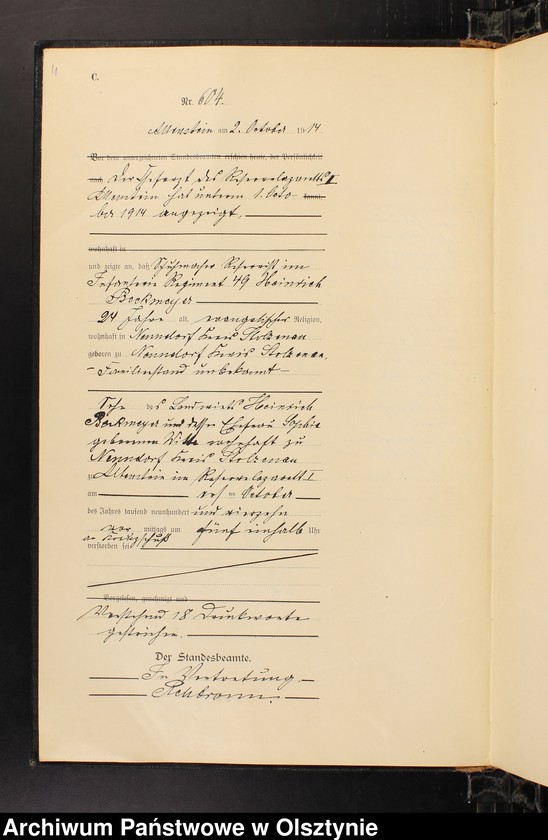 4
C.
Nr. 604.
Allenstein am 2. October 1914.
Vor dem unterzeichneten Standesbeamten erschien heute, der Persönlichkeit
nach, Der Chefarzt des Reservelazaretts II
Allenstein hat unterm 1. Octo- kannt,
ber 1914 angezeigt,
wohnhaft in
und zeigte an, daß Schuhmacher Reservist im
Infanterie Regiment 49 Heinrich
Bockmeyer
24 Jahre alt, evangelischer Religion,
wohnhaft in Nenndorf Kreis Stolzenau
geboren zu Nenndorf Kreis Stolzenau,
- Familienstand unbekannt -
Sohn des Landwirts Heinrich
Bockmeyer und dessen Ehefrau Sophie
geborenen Witte wohnhaft zu
Nenndorf Kreis Stolzenau
zu Allenstein im Reservelazarett I
am ersten October
des Jahres tausend neunhundert und vierzehn
vor mittags um fünf einhalb Uhr
an Kopfschuß
verstorben sei
Vorgelesen, genehmigt und
Vorstehend 18 Druckworte
gestrichen.
Der Standesbeamte.
In Vertretung
Archiwum Państwowe w Olsztynie